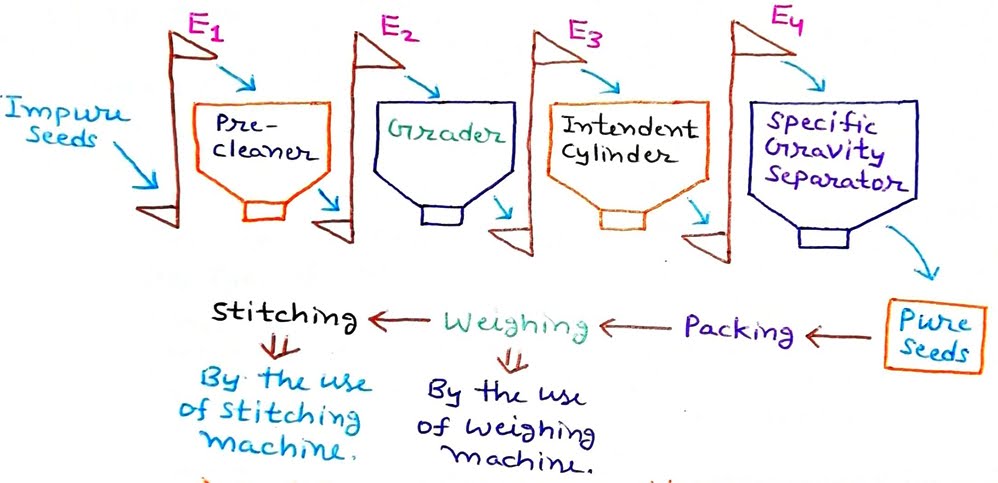 E1
E2
E3
E4
Impure
Seeds
Pre-
cleaner
Grader
Intendent
Cylinder
Specific
Gravity
Separator
Stitching
Weighing
Packing
Pure
Seeds
By the use
of stitching
machine.
By the use
of weighing
machine.